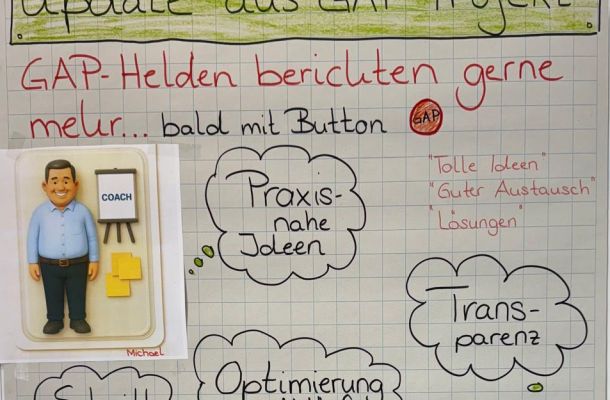 Update aus GAP Projekt
GAP-Helden berichten gerne
mehr... bald mit Button
GAP
"Tolle Ideen"
"Guter Austausch"
"Lösungen"
Praxis-
nahe
Ideen
COACH
Trans-
parenz
Michael
Optimierung